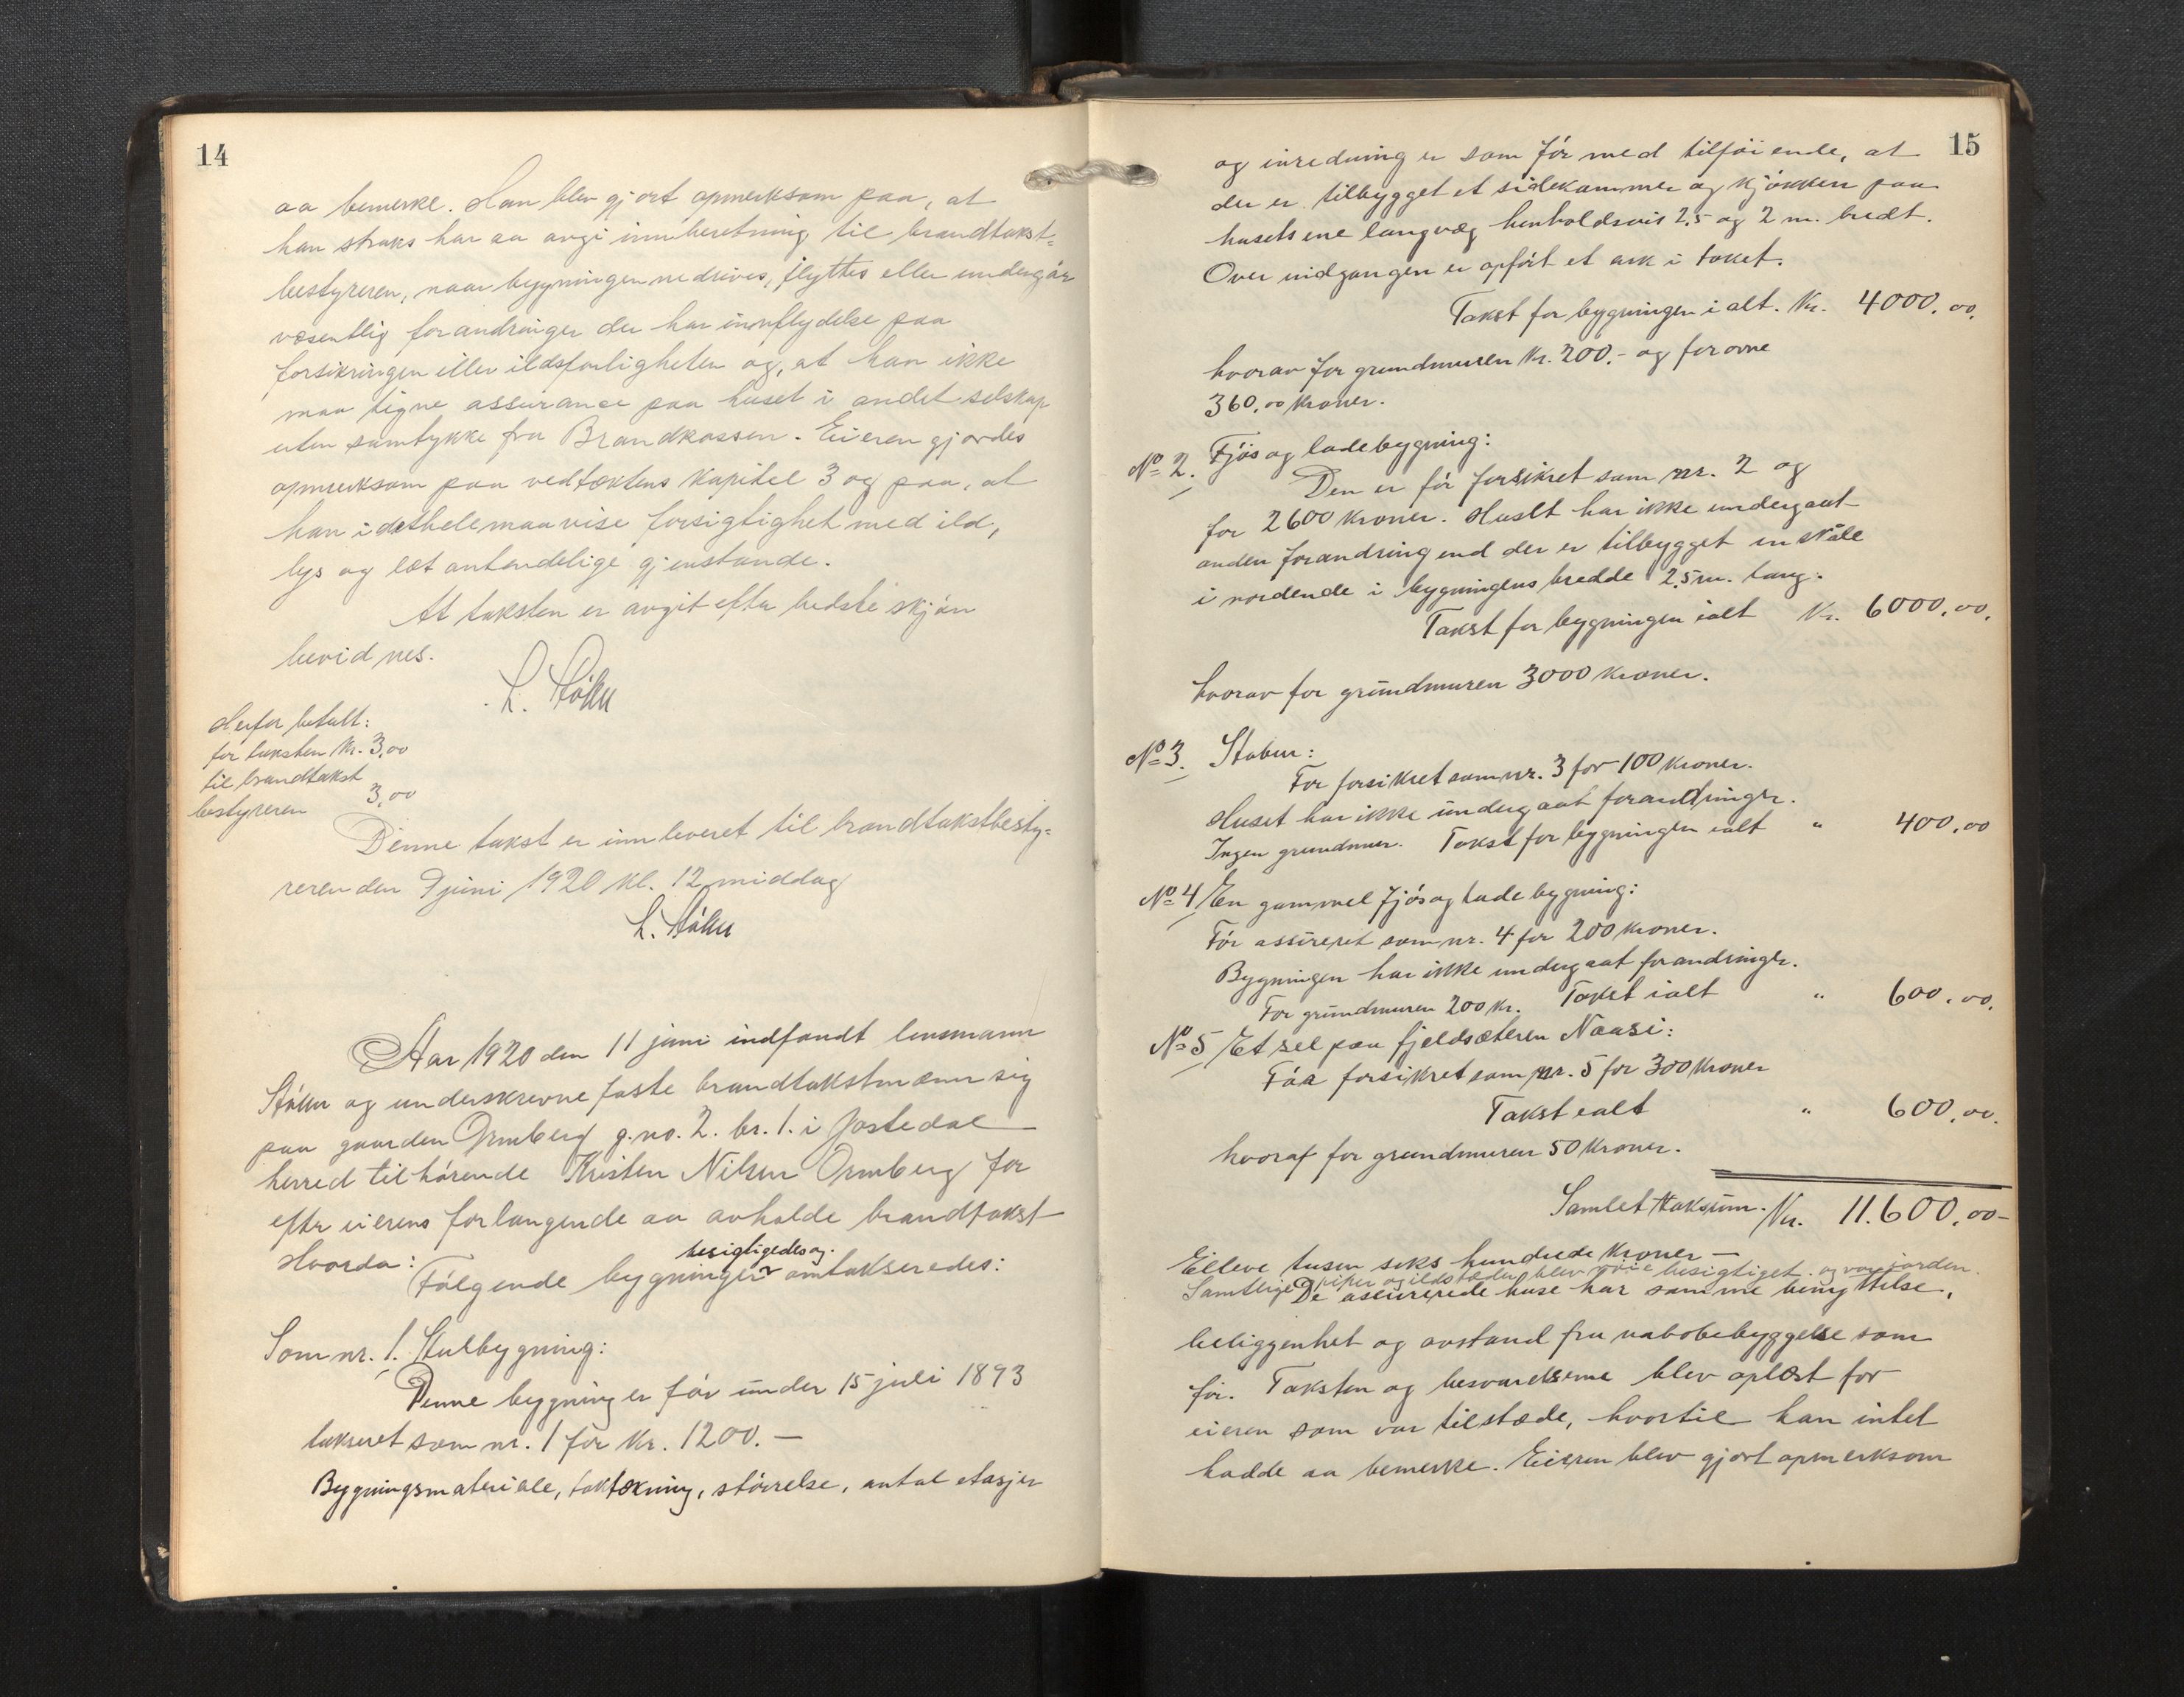 14
aa bemerke. Han blev gjort opmerksom paa, at
han straks har aa avgi innberetning til brandtakst-
bestyreren, naar bygningen nedrives, flyttes eller undergår
væsentlig forandringer der har innflydelse paa
forsikringen eller ildsfarligheten og, at han ikke
maa tegne assurance paa huset i andet selskap
uten samtykke fra Brandkassen. Eieren gjordes
opmerksom paa vedtæktens Kapitel 3 og paa, at
han i dethele maa vise forsigtighet med ild,
lys og let antendelige gjenstande.
At taksten er avgit efter bedste skjøn
bevidnes.
L. Støhn
Herfor betalt:
for taksten Kr. 3,00
til brandtakst
bestyreren 3,00
Denne takst er innleveret til brandtakstbesty-
reren den 9 juni 1920 kl. 12 middag
L. Støhn
Aar 1920 den 11 juni indfandt lensmann
Støhn og underskrevne faste brandtakstmænn sig
paa gaarden Ormberg g.no. 2. br. 1. i Jostedal
herred tilhørende Kristen Nilsen Ormberg for
efter eierens forlangende aa avholde brandtakst
Hvorda:
besigtigedes og
Følgende bygninger omtakseredes:
Som nr. 1. Stulbygning:
Denne bygning er før under 15 juli 1893
takseret som nr. 1 for Kr. 1200.—
Bygningsmateriale, taktækning, størrelse, antal etasjer
15
og inredning er som før med tilføiende, at
der er tilbygget et sidekammer og kjøkken paa
husets ene langvæg henholdsvis 2,5 og 2 m. bredt.
Over indgangen er opført et ark i taket.
Takst for bygningen i alt. Kr. 4000,00.
hvorav for grundmuren Kr. 200.- og for ovne
360,00 Kroner.
No 2. Fjøs og ladebygning:
Den er før forsikret som nr. 2 og
for 2600 Kroner. Huset har ikke undergaat
anden forandring end der er tilbygget en skåle
i nordende i bygningens bredde 2,5 m. lang.
Takst for bygningen ialt Kr. 6000,00.
hvorav for grundmuren 3000 Kroner.
No 3. Stabur:
Før forsikret som nr. 3 for 100 Kroner.
Huset har ikke undergaat forandringer.
Ingen grundmur. Takst for bygningen ialt " 400,00
No 4 En gammel fjøs og ladebygning:
Før assureret som nr. 4 for 200 Kroner.
Bygningen har ikke undergaat forandringer.
For grundmuren 200 Kr. Takst ialt " 600,00.
No 5 Et sel paa fjeldsæteren Naasi:
Før forsikret som nr. 5 for 300 Kroner
Takst ialt " 600,00.
hvoraf for grundmuren 50 Kroner.
Samlet taksum. Kr. 11.600,00-
Elleve tusen seks hundrede Kroner —
Samtlige piper og ildsteder blev nøie besigtiget og var i orden.
De assurerede huse har samme benyttelse,
beliggenhet og avstand fra nabobebyggelse som
før. Taksten og besvarelserne blev oplæst for
eieren som var tilstæde, hvortil han intet
hadde aa bemerke. Eieren blev gjort opmerksom